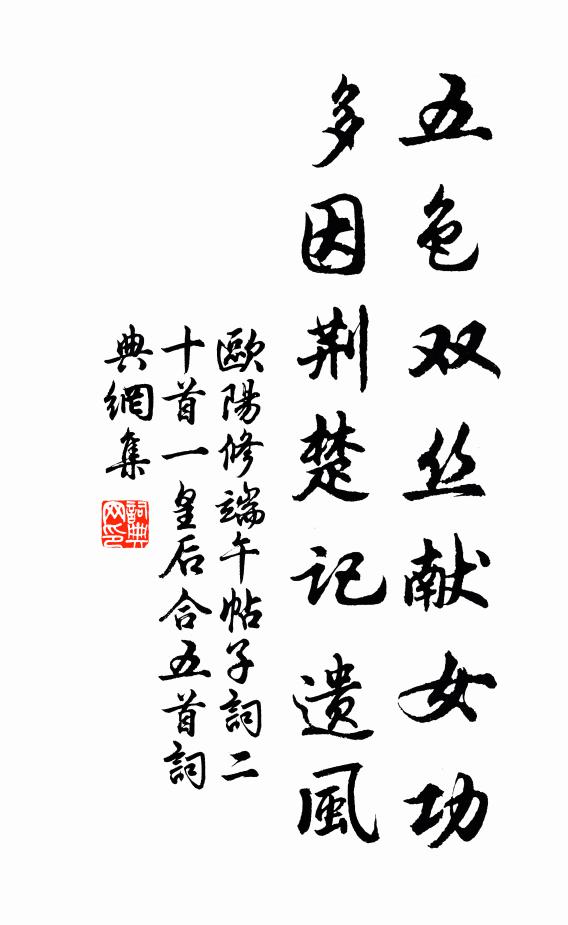 五色双丝献女功
多因荆楚记遗風
歐陽修端午帖子詞二
十首一皇后合五首詞
典網集
詞典網印